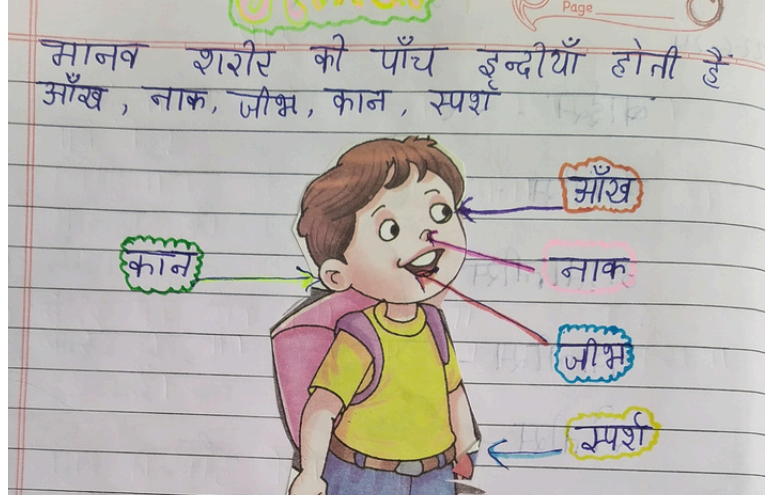 Page
मानव शरीर की पाँच इन्दीयाँ होती है
आँख, नाक, जीभ, कान, स्पर्श
आँख
कान
नाक
जीभ
स्पर्श